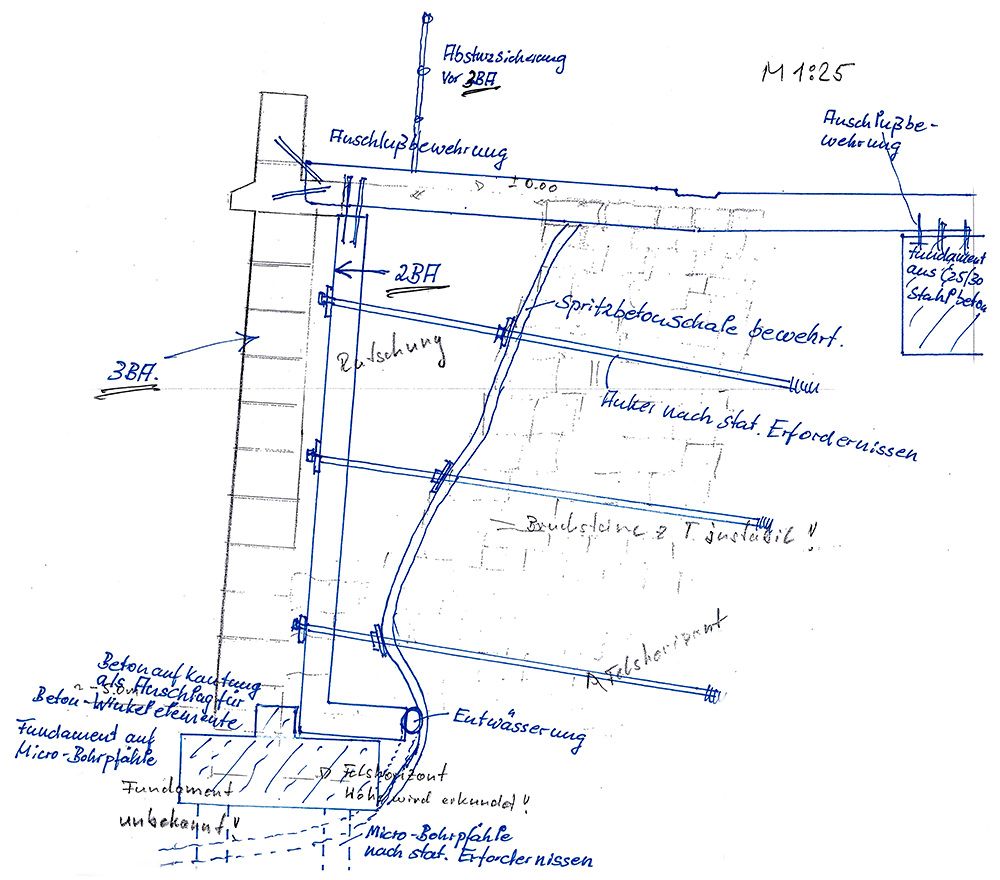 Absturzsicherung
Vor 3BA
M 1:25
Anschlußbe-
wehrung
Anschlußbewehrung
± 0.00
2BA
Fundament
aus C25/30
Stahlbeton
Spritzbetonschale bewehrt.
Rutschung
3BA.
Anker nach stat. Erfordernissen
Bruchsteine z T instabil !!
Felshorizont
Betonaufkantung
als Anschlag für
~ -5.0m
Beton-Winkelelemente
Fundament auf
Micro-Bohrpfähle
Entwässerung
Felshorizont
Fundament
Höhe wird erkundet !!
unbekannt !!
Micro-Bohrpfähle
nach stat. Erfordernissen